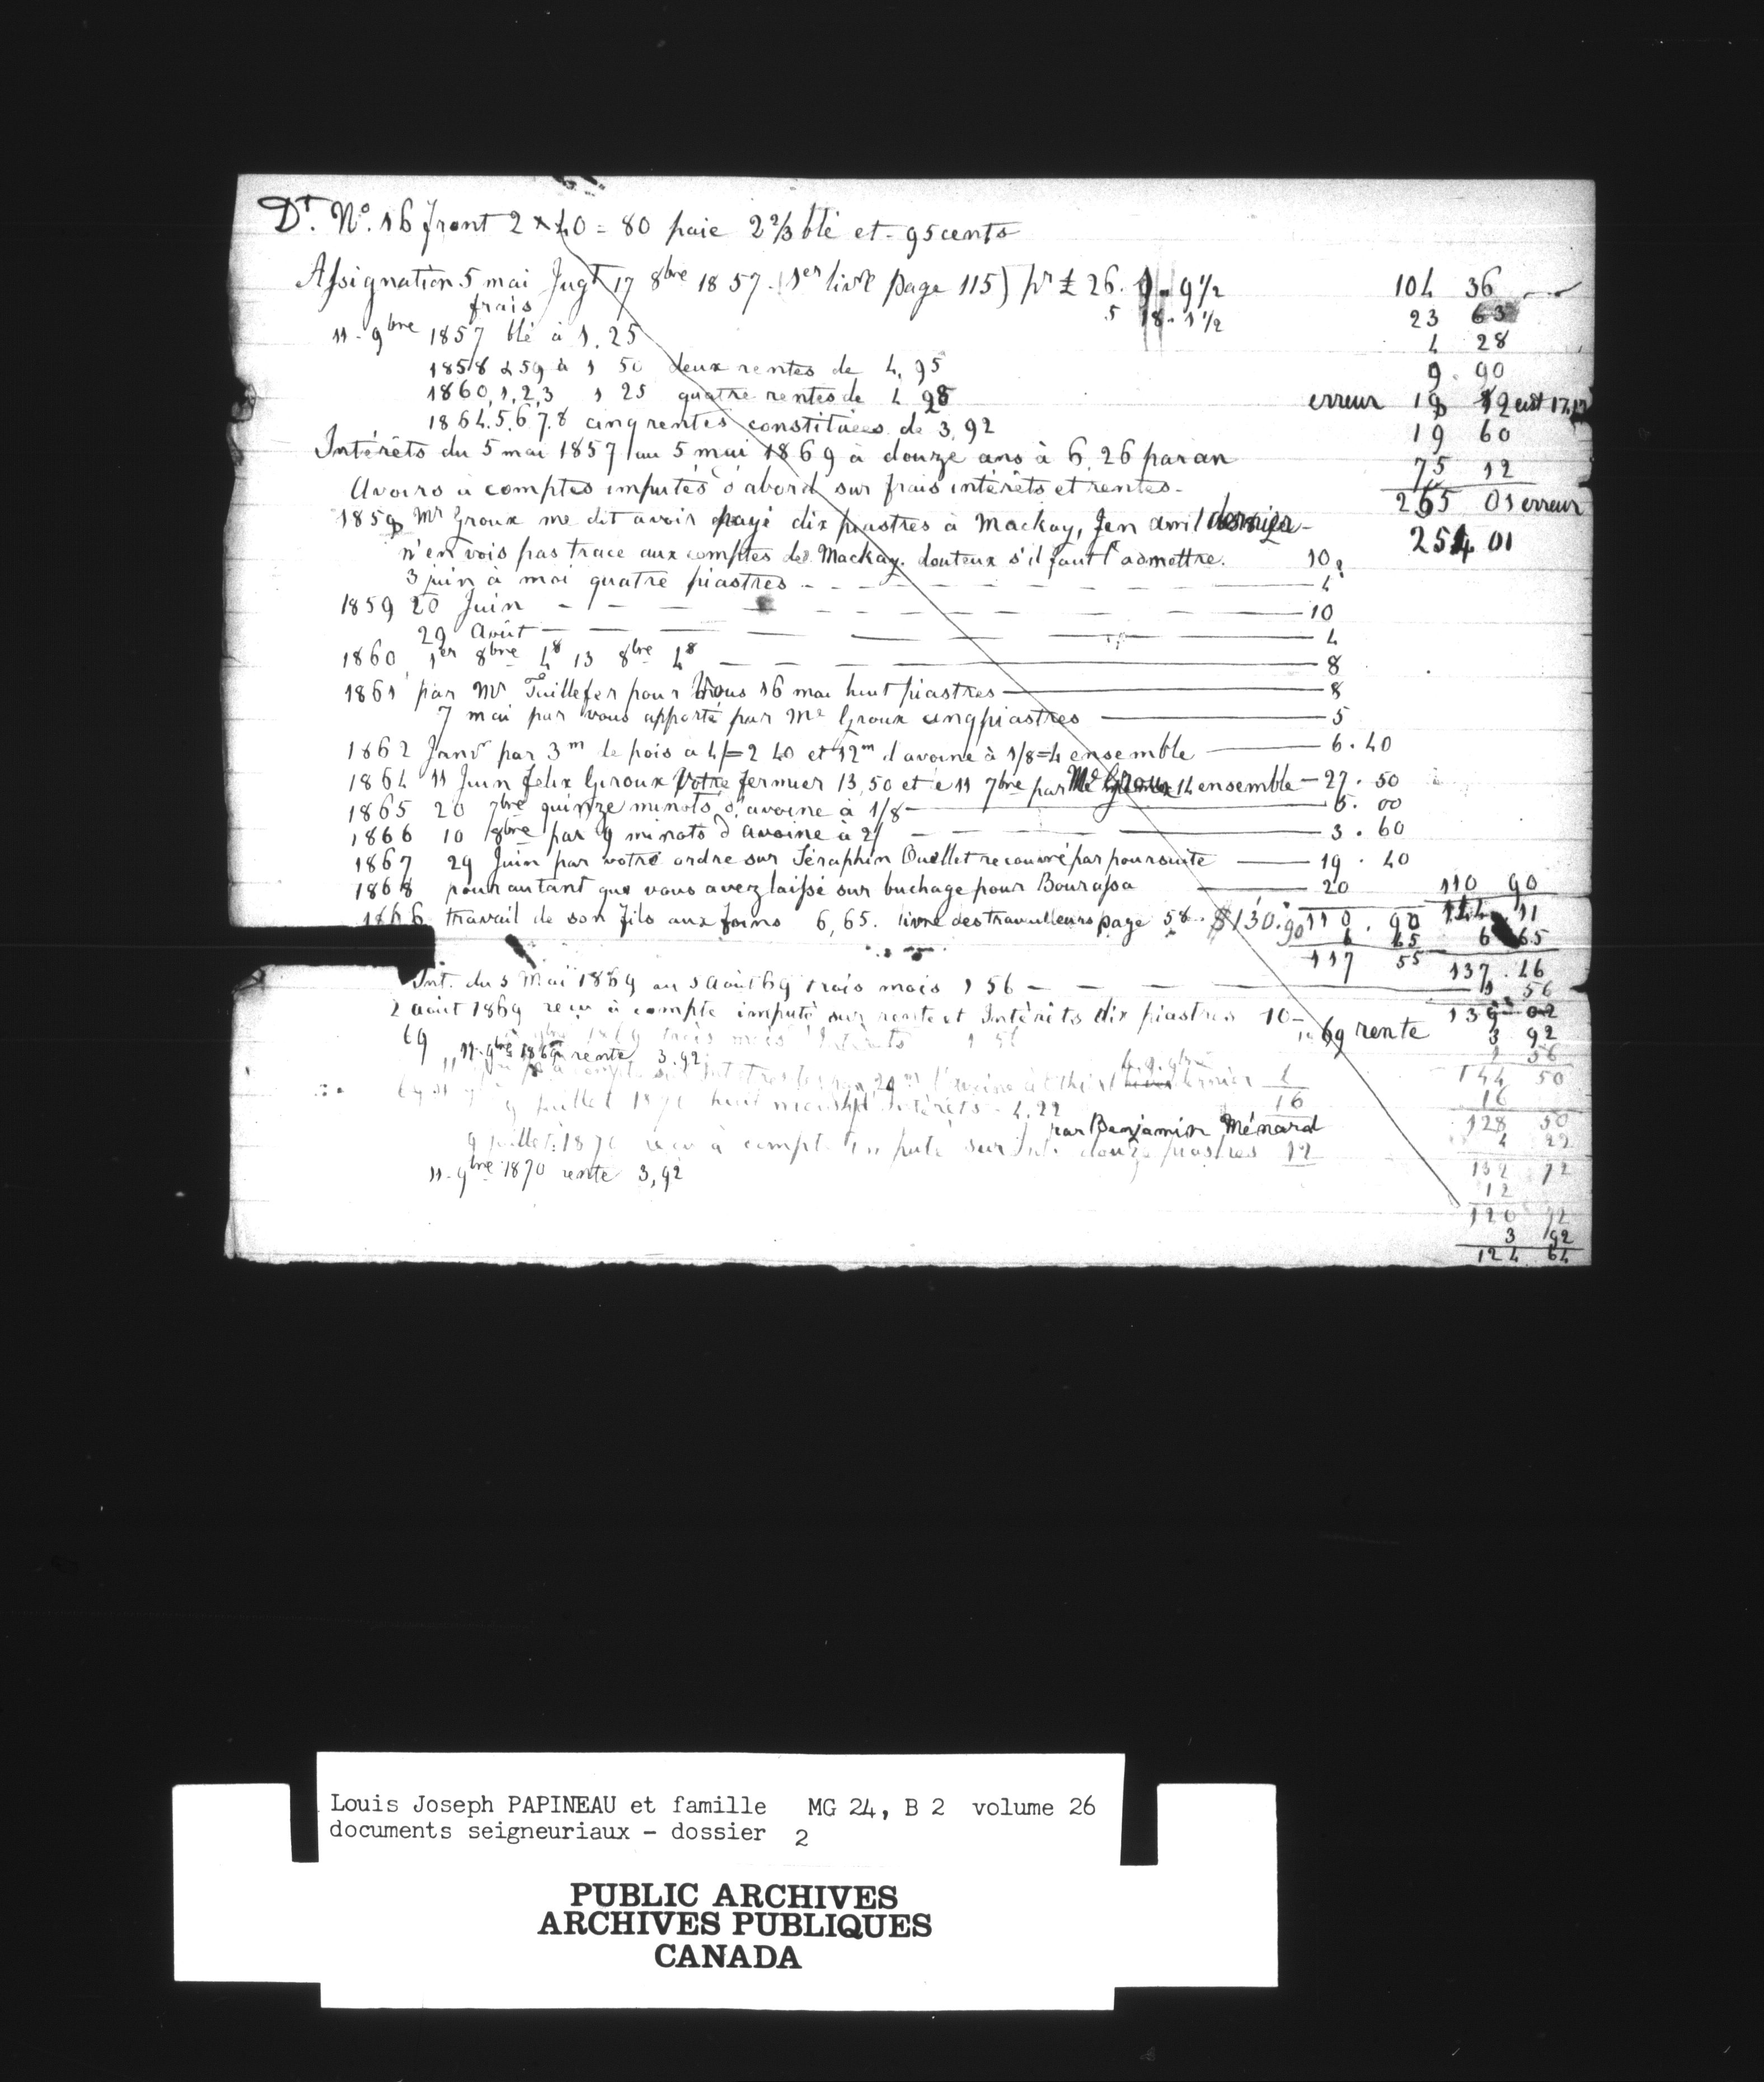 Dt. No. 16 front 2 x 40 = 80 paie 2 2/3 blé et 95 cents
Assignation 5 mai Jugt 17 8bre 1857. (1er livre page 115) pr £ 26. 1. 9 1/2 104 36
frais 5 18. 1 1/2 23 63
11. 9bre 1857 blé à 1.25 4 28
1858 & 59 à 1 50 deux rentes de 4,95 9. 90
1860,1,2,3 1 25 quatre rentes de 4 28 erreur 19 12 est 17.12
1864.5.6.7.8 cinq rentes constituées de 3,92 19 60
Intérêts du 5 mai 1857 au 5 mai 1869 à douze ans à 6.26 par an 75 12
Avoirs à comptes imputés d'abord sur frais intérêts et rentes. 265 01 erreur
1859 Mr Groux me dit avoir payé dix piastres à Mackay, J'en avril dernier 254 01
n'en vois pas trace aux comptes de Mackay. douteux s'il faut l'admettre. 10
3 juin à moi quatre piastres 4
1859 20 Juin 10
29 Août 4
1860 1er 8bre 4$ 13 8bre 4$ 8
1861 par Mr Tuillefer pour vous 16 mai huit piastres 8
7 mai par vous apporté par Me Groux cinq piastres 5
1862 Janvr par 3m de pois à 4/=2 40 et 12m d'avoine à 1/8=4 ensemble 6.40
1864 11 Juin Félix Giroux Votre fermier 13,50 et le 11 7bre par Me Groux 14 ensemble 27.50
1865 20 7bre quinze minots d'avoine à 1/8 5.00
1866 10 8bre par 9 minots d'avoine à 2/ 3.60
1867 29 Juin par votre ordre sur Séraphin Ouellet recouvré par poursuite 19.40
1868 pour autant que vous avez laissé sur buchage pour Bourassa 20 110 90
1866 travail de son fils aux foins 6,65. livre des travailleurs page 58. $130.90 110.90 144 11
6 65 6 65
117 55 137.46
Int. du 5 Mai 1869 au 5 août 69 trois mois 1 56 1 56
2 août 1869 reçu à compte imputé sur rente et Intérêts dix piastres 10 139 02
69 rente 3 92
11. 9bre 1869 rente 3.92 1 56
144 50
16 16
9 Juillet 1870 huit mois d'Intérêts 4.22 128 50
par Benjamin Ménard 4 22
9 juillet 1870 reçu à compte imputé sur Int. douze piastres 12 132 72
11. 9bre 1870 rente 3,92 12
120 72
3 92
124 64
Louis Joseph PAPINEAU et famille MG 24, B 2 volume 26
documents seigneuriaux - dossier 2
PUBLIC ARCHIVES
ARCHIVES PUBLIQUES
CANADA